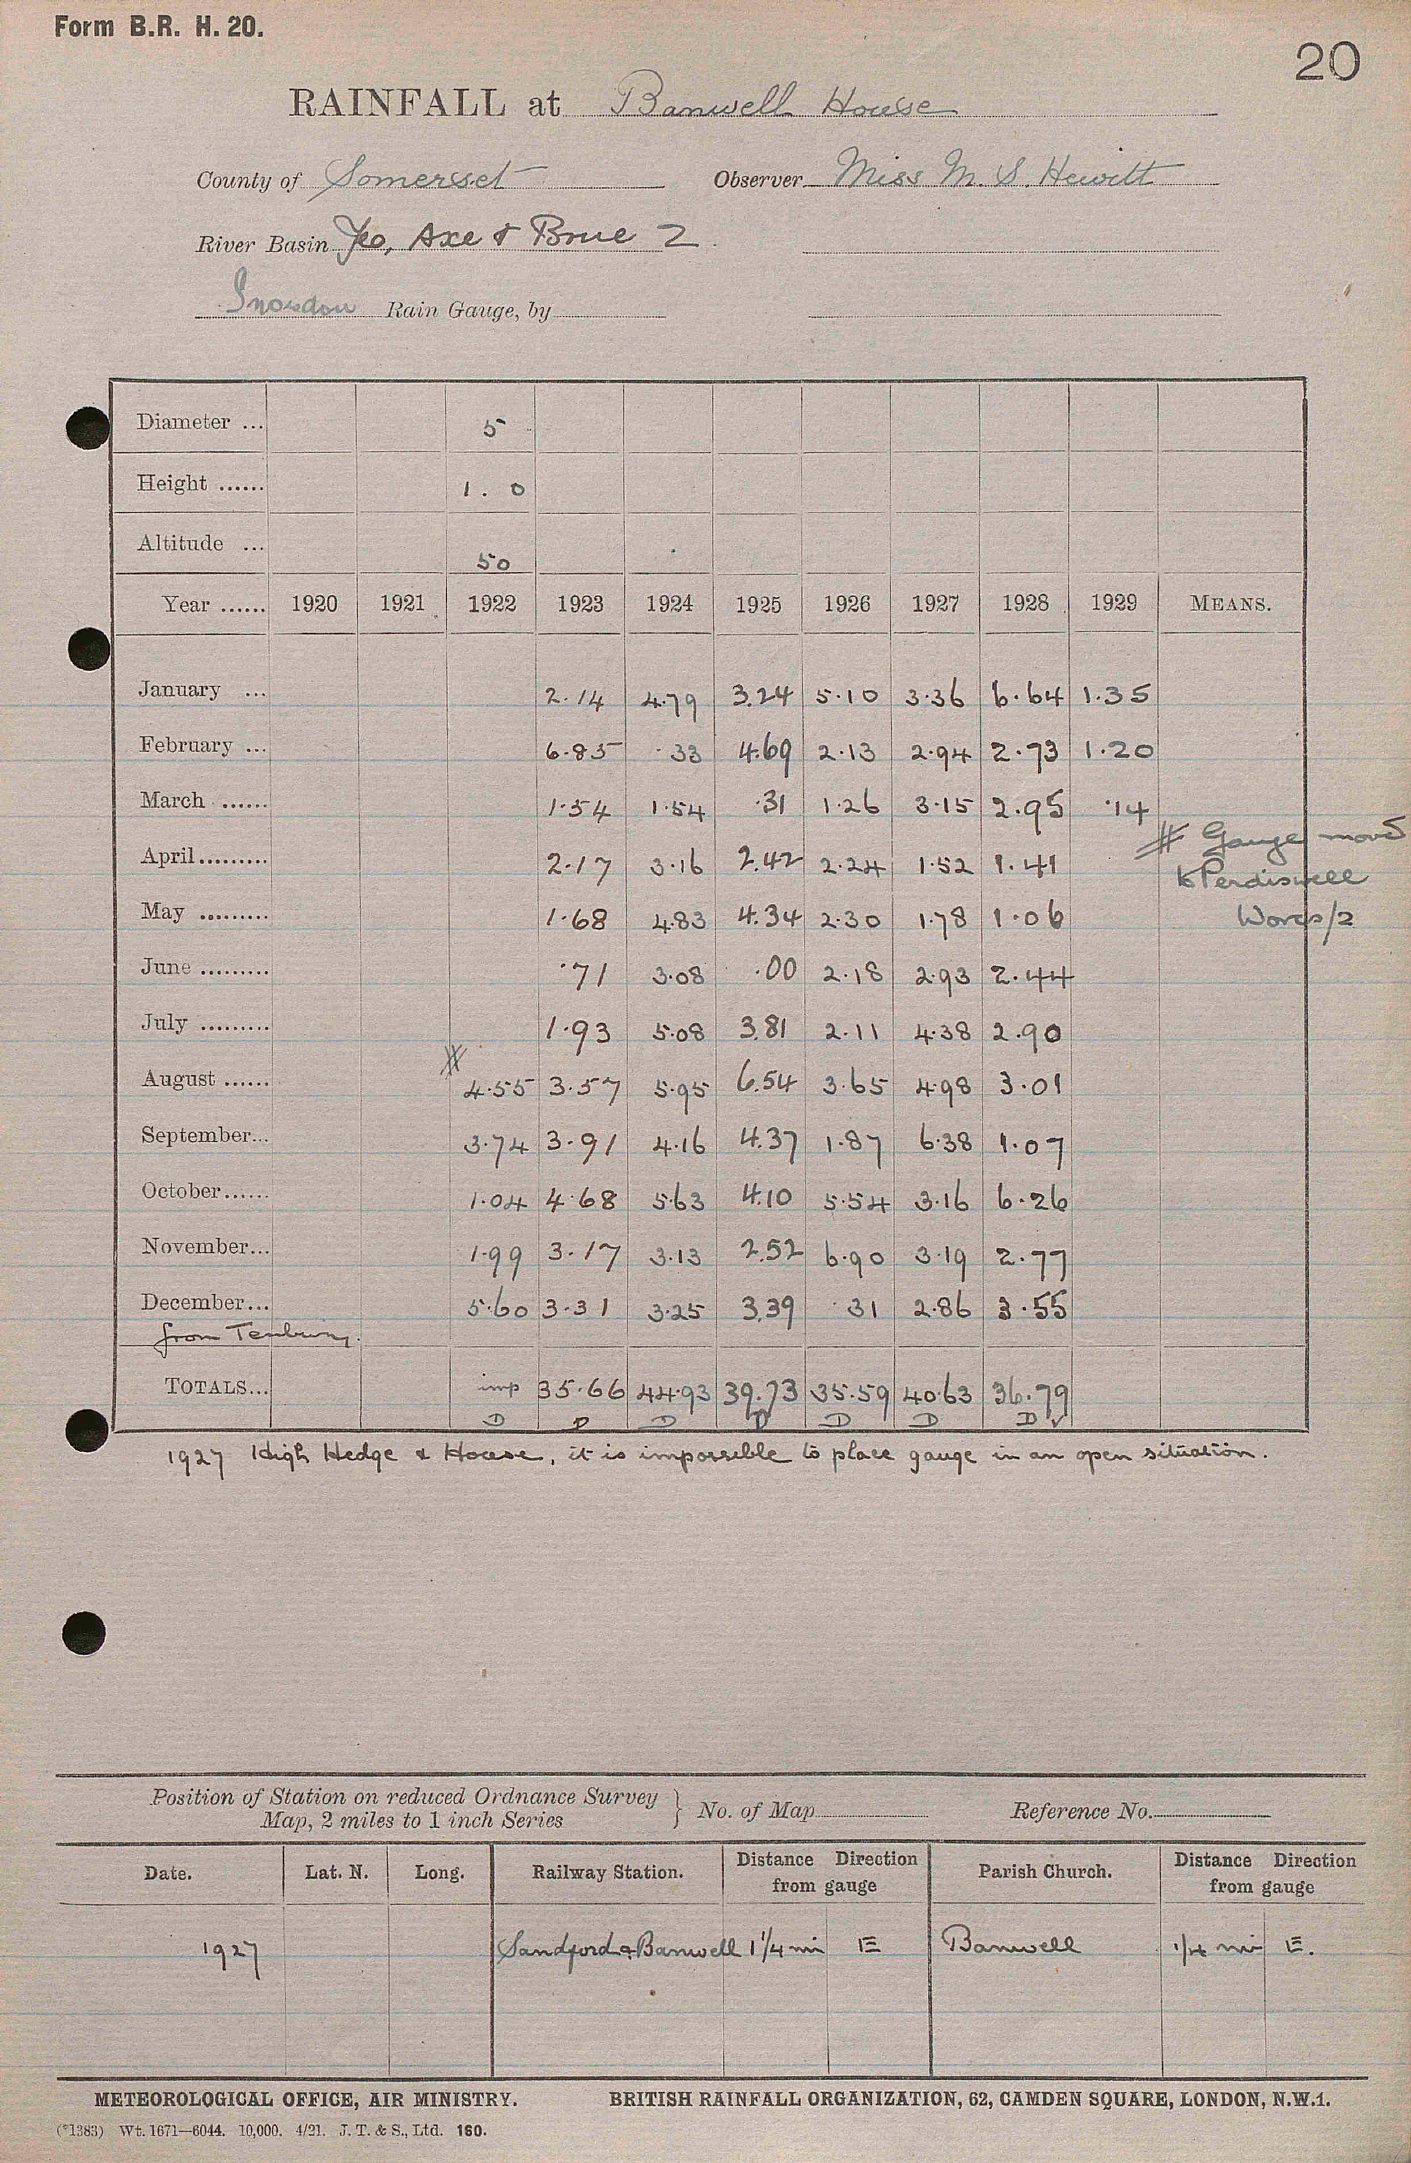 Form B.R. H. 20.
20
RAINFALL at Banwell House
County of Somerset Observer Miss M. S. Hewitt
River Basin Yeo, Axe & Brue 2
Snowdon Rain Gauge, by
Diameter ... 5
Height ...... 1. 0
Altitude ... 50
Year ...... 1920 1921 1922 1923 1924 1925 1926 1927 1928 1929 MEANS.
January ... 2.14 4.79 3.24 5.10 3.36 6.64 1.35
February ... 6.85 .33 4.69 2.13 2.94 2.73 1.20
March ...... 1.54 1.54 .31 1.26 3.15 2.95 .14
April......... 2.17 3.16 2.42 2.24 1.52 1.41 # Gauge moved
to Perdiswell
May ......... 1.68 4.83 4.34 2.30 1.78 1.06 Worcs/2
June ......... .71 3.08 .00 2.18 2.93 2.44
July ......... 1.93 5.08 3.81 2.11 4.38 2.90
August ...... # 4.55 3.57 5.95 6.54 3.65 4.98 3.01
September... 3.74 3.91 4.16 4.37 1.87 6.38 1.07
October...... 1.04 4.68 5.63 4.10 5.54 3.16 6.26
November... 1.99 3.17 3.13 2.52 6.90 3.19 2.77
December... 5.60 3.31 3.25 3.39 .31 2.86 3.55
from Tenbury.
TOTALS... imp 35.66 44.93 39.73 35.59 40.63 36.79
D D D D D D D ✓
1927 High Hedge & House, it is impossible to place gauge in an open situation.
Position of Station on reduced Ordnance Survey
Map, 2 miles to 1 inch Series } No. of Map Reference No.
Date. Lat. N. Long. Railway Station. Distance Direction from gauge Parish Church. Distance Direction from gauge
1927 Sandford & Banwell 1 1/4 mi E Banwell 1/4 mi E.
METEOROLOGICAL OFFICE, AIR MINISTRY. BRITISH RAINFALL ORGANIZATION, 62, CAMDEN SQUARE, LONDON, N.W.1.
(*1383) Wt. 1671—6044. 10,000. 4/21. J. T. & S., Ltd. 160.